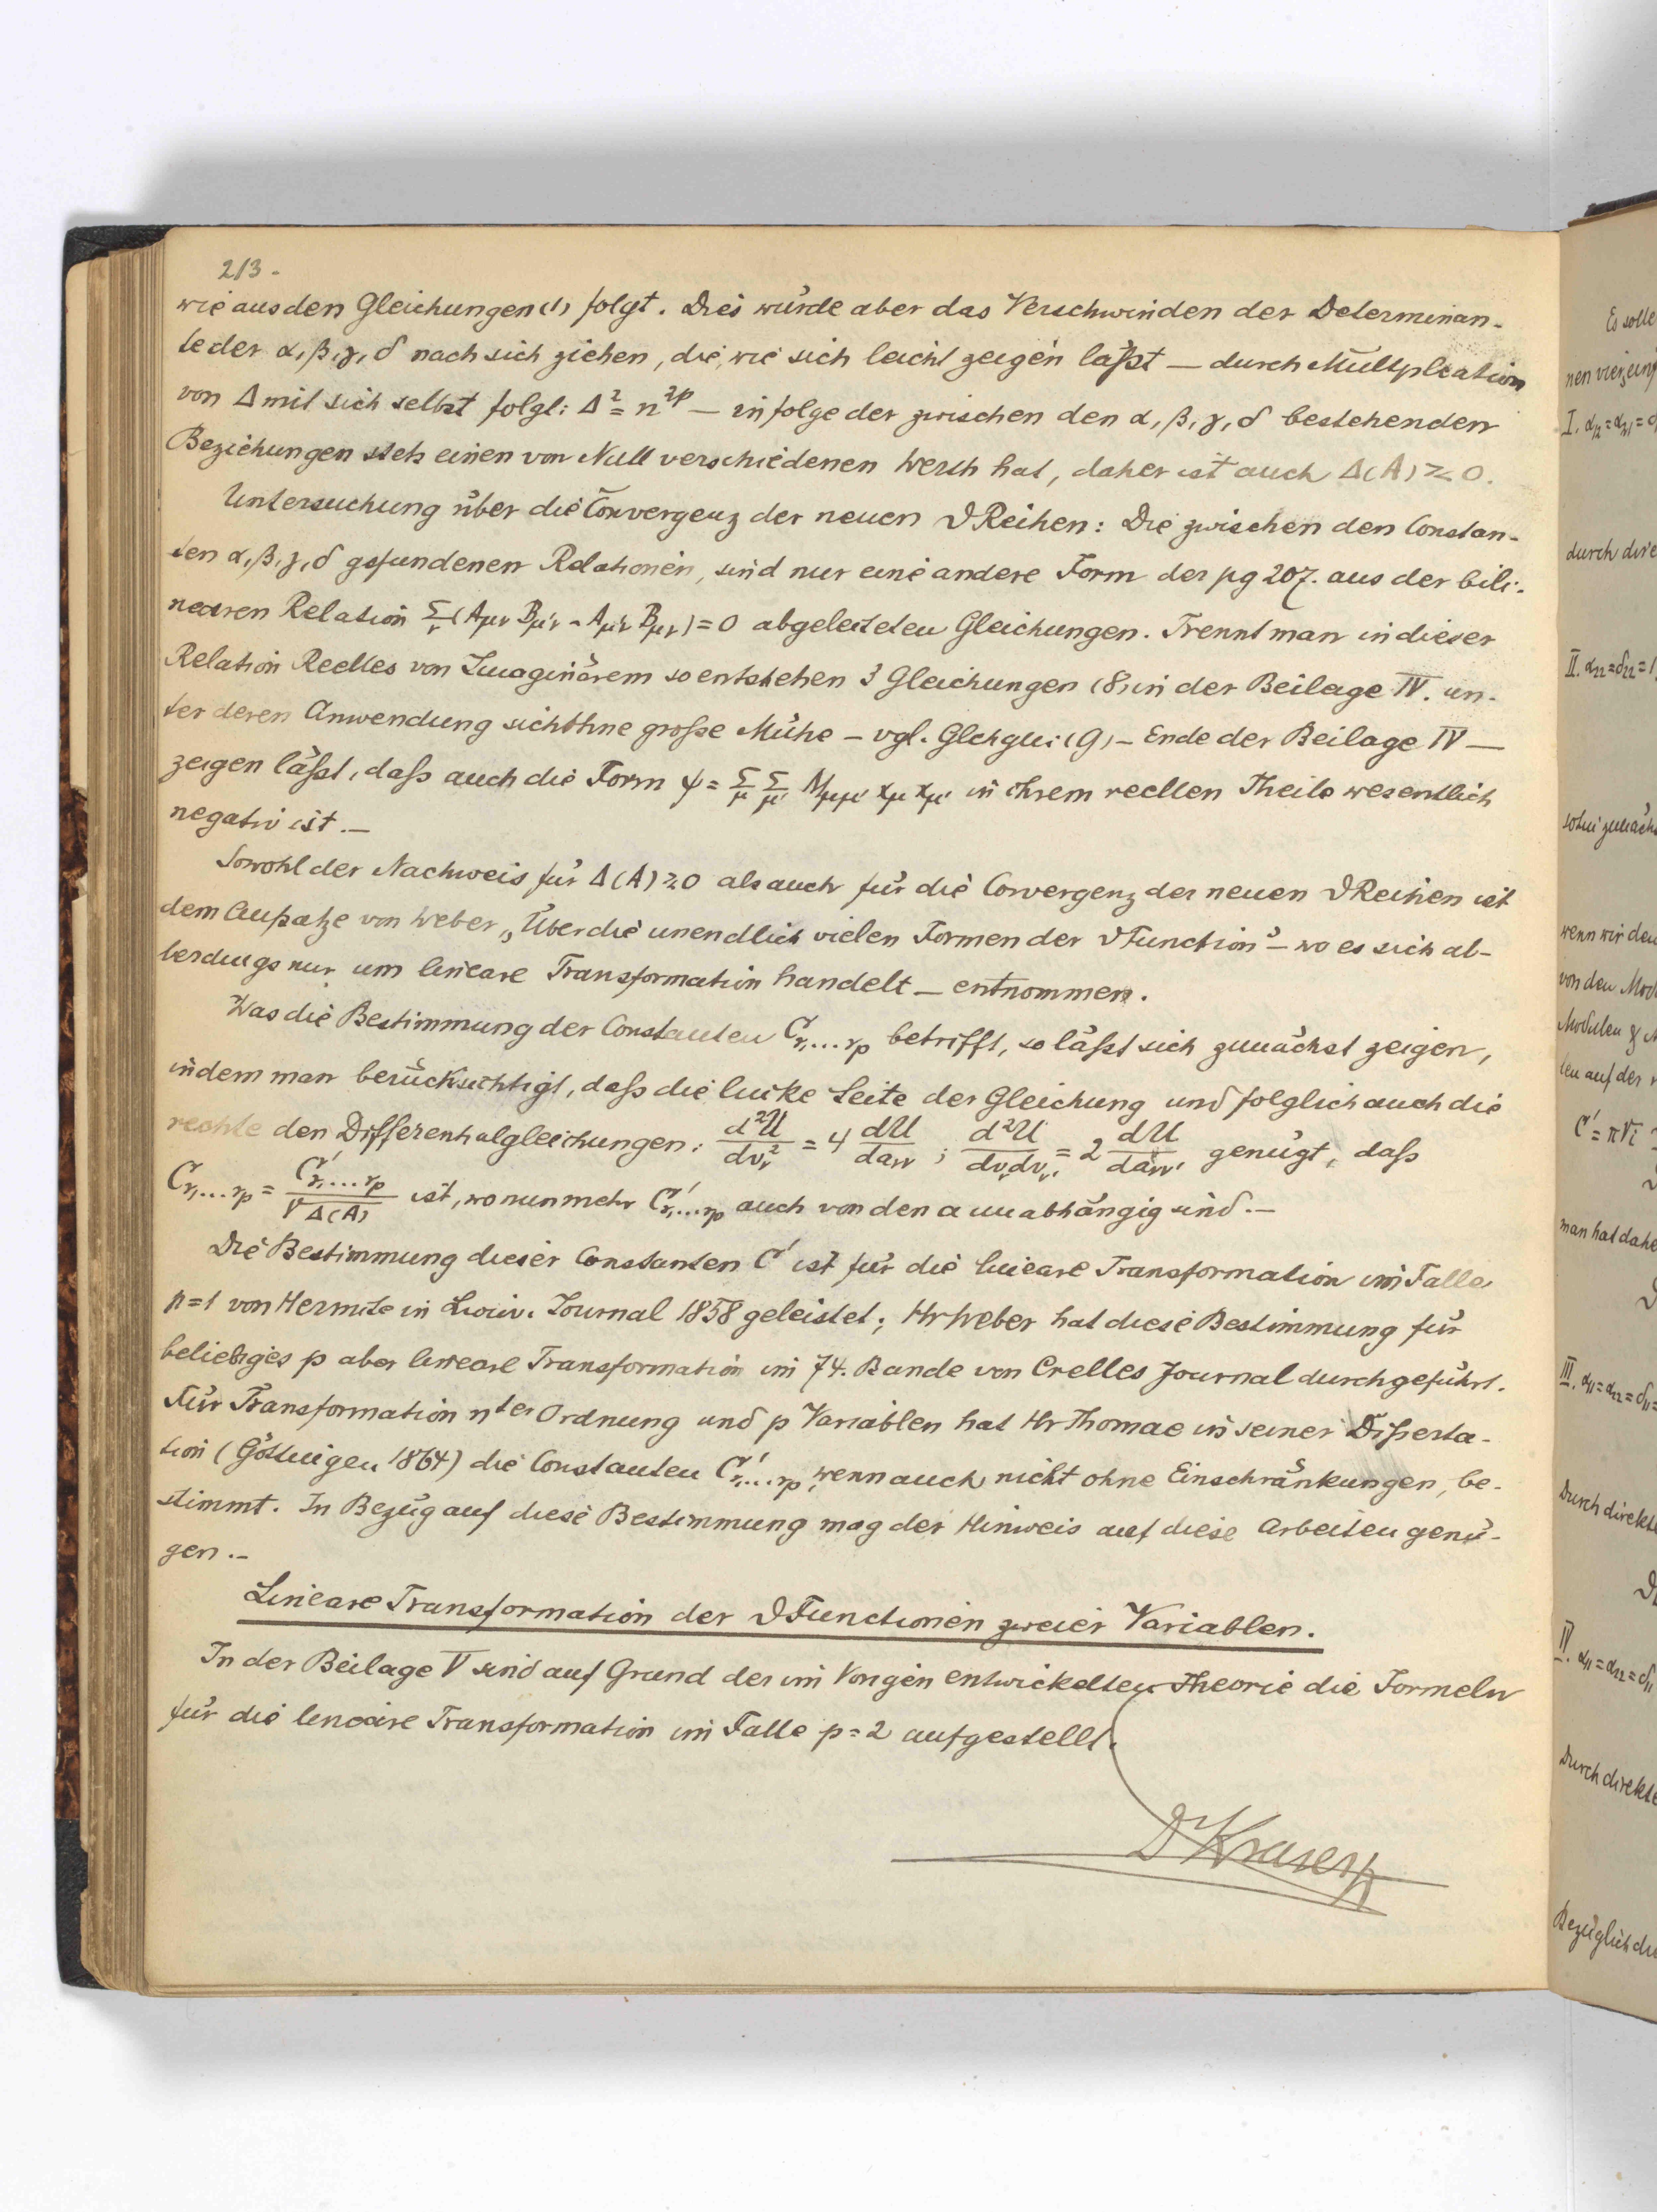 213.
wie aus den Gleichungen (1) folgt. Dies würde aber das Verschwinden der Determinan-
te der α, β, γ, δ nach sich ziehen, die, wie sich leicht zeigen läßt — durch Multiplication
von Δ mit sich selbst folgt: Δ² = n²ᵖ — in folge der zwischen den α, β, γ, δ bestehenden
Beziehungen stets einen von Null verschiedenen Werth hat, daher ist auch Δ(A) ≷ 0.
Untersuchung über die Convergenz der neuen ϑReihen: Die zwischen den Constan-
ten α, β, γ, δ gefundenen Relationen, sind nur eine andere Form der pg 207. aus der bili-
nearen Relation Σ_ν (A_μν B_μ'ν - A_μ'ν B_μν) = 0 abgeleiteten Gleichungen. Trennt man in dieser
Relation Reelles von Imaginärem so entstehen 3 Gleichungen (8) in der Beilage IV. un-
ter deren Anwendung sich ohne große Mühe — vgl. Glchgn: (9) — Ende der Beilage IV —
zeigen läßt, daß auch die Form ψ = Σ_μ Σ_μ' A'_μμ' x_μ x_μ' in ihrem reellen Theile wesentlich
negativ ist. —
Sowohl der Nachweis für Δ(A) ≷ 0 als auch für die Convergenz der neuen ϑReihen ist
dem Aufsatze von Weber „Über die unendlich vielen Formen der ϑFunction" — wo es sich al-
lerdings nur um lineare Transformation handelt — entnommen.
Was die Bestimmung der Constanten C_r₁…r_p betrifft, so läßt sich zunächst zeigen,
indem man berücksichtigt, daß die linke Seite der Gleichung und folglich auch die
rechte den Differentialgleichungen: d²U/dv_ν² = 4 dU/da_νν ; d²U/dv_ν dv_ν' = 2 dU/da_νν' genügt, daß
C_r₁…r_p = C'_r₁…r_p / √Δ(A) ist, wo nunmehr C'_r₁…r_p auch von den a unabhängig sind. —
Die Bestimmung dieser Constanten C' ist für die lineare Transformation im Falle
p=1 von Hermite in Liouv. Journal 1858 geleistet; Hr Weber hat diese Bestimmung für
beliebiges p aber lineare Transformation im 74. Bande von Crelles Journal durchgeführt.
Für Transformation nter Ordnung und p Variablen hat Hr Thomae in seiner Disserta-
tion (Göttingen 1864) die Constanten C'_r₁…r_p, wenn auch nicht ohne Einschränkungen, be-
stimmt. In Bezug auf diese Bestimmung mag der Hinweis auf diese Arbeiten genü-
gen. —
Lineare Transformation der ϑFunctionen zweier Variablen.
In der Beilage V sind auf Grund der im Vorigen entwickelten Theorie die Formeln
für die lineare Transformation im Falle p=2 aufgestellt.
D Krazer
Es solle
nen vier
I. α₁₂ = α₂₁ = 0
durch dire
II. α₂₂ = δ₂₂ = 1,
so
wenn wir den
von den Mod
Modulen
ten auf der r
C' = π
man hat dahe
III. α₁₁ = α₂₂ = δ₁₁ =
Durch direkte
IV. α₁₁ = α₂₂ = δ₁₁
Durch direkte
Bezüglich de